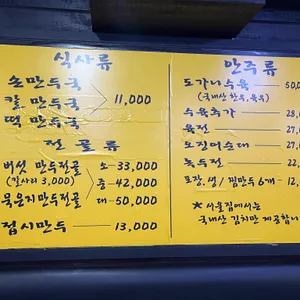 식사류
손만두국
칼 만두국 > 11,000
떡 만두국
전 골 류
버섯 만두전골 소 - 33,000
(칼사리 3,000) 중 - 42,000
묵은지만두전골 대 - 50,000
접시만두 — 13,000
안주류
도가니수육 — 50,0
(국내산 한우, 육우)
수육추가 — 28,
육전 — 27,
오징어순대 — 27,
녹두전 — 22,
포장, 생/찜만두 6개 - 12,
★ 서울집에서는
국내산 김치만 제공합니